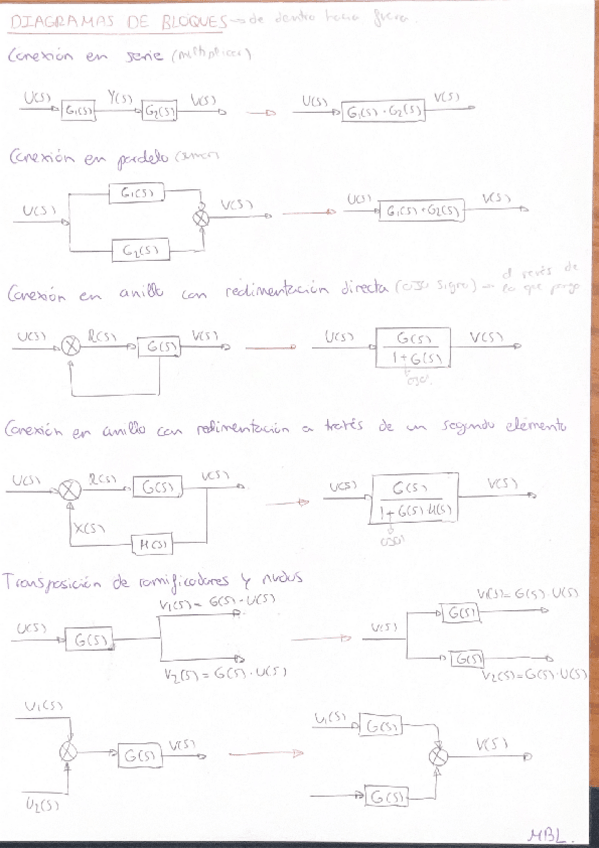 DIAGRAMAS DE BLOQUES → de dentro hacia fuera.
Conexión en serie (multiplicar)
U(S) G1(S) Y(S) G2(S) V(S) → U(S) G1(S) · G2(S) V(S)
Conexión en paralelo (sumar)
G1(S)
U(S) V(S) → U(S) G1(S)+G2(S) V(S)
G2(S)
Conexión en anillo con realimentación directa (ojo signo) → el revés de
lo que pongo
U(S) R(S) G(S) V(S) → U(S) G(S) V(S)
1+G(S)
ojo!
Conexión en anillo con realimentación a través de un segundo elemento
U(S) R(S) G(S) V(S) → U(S) G(S) V(S)
X(S) 1+G(S)·H(S)
H(S) ojo!
Transposición de ramificadores y nudos
V1(S)= G(S)·U(S) V1(S)=G(S)·U(S)
U(S) G(S) → U(S) G(S)
G(S)
V2(S)=G(S)·U(S) V2(S)=G(S)·U(S)
U1(S) U1(S) G(S)
G(S) V(S) → V(S)
U2(S) G(S)
MBL.